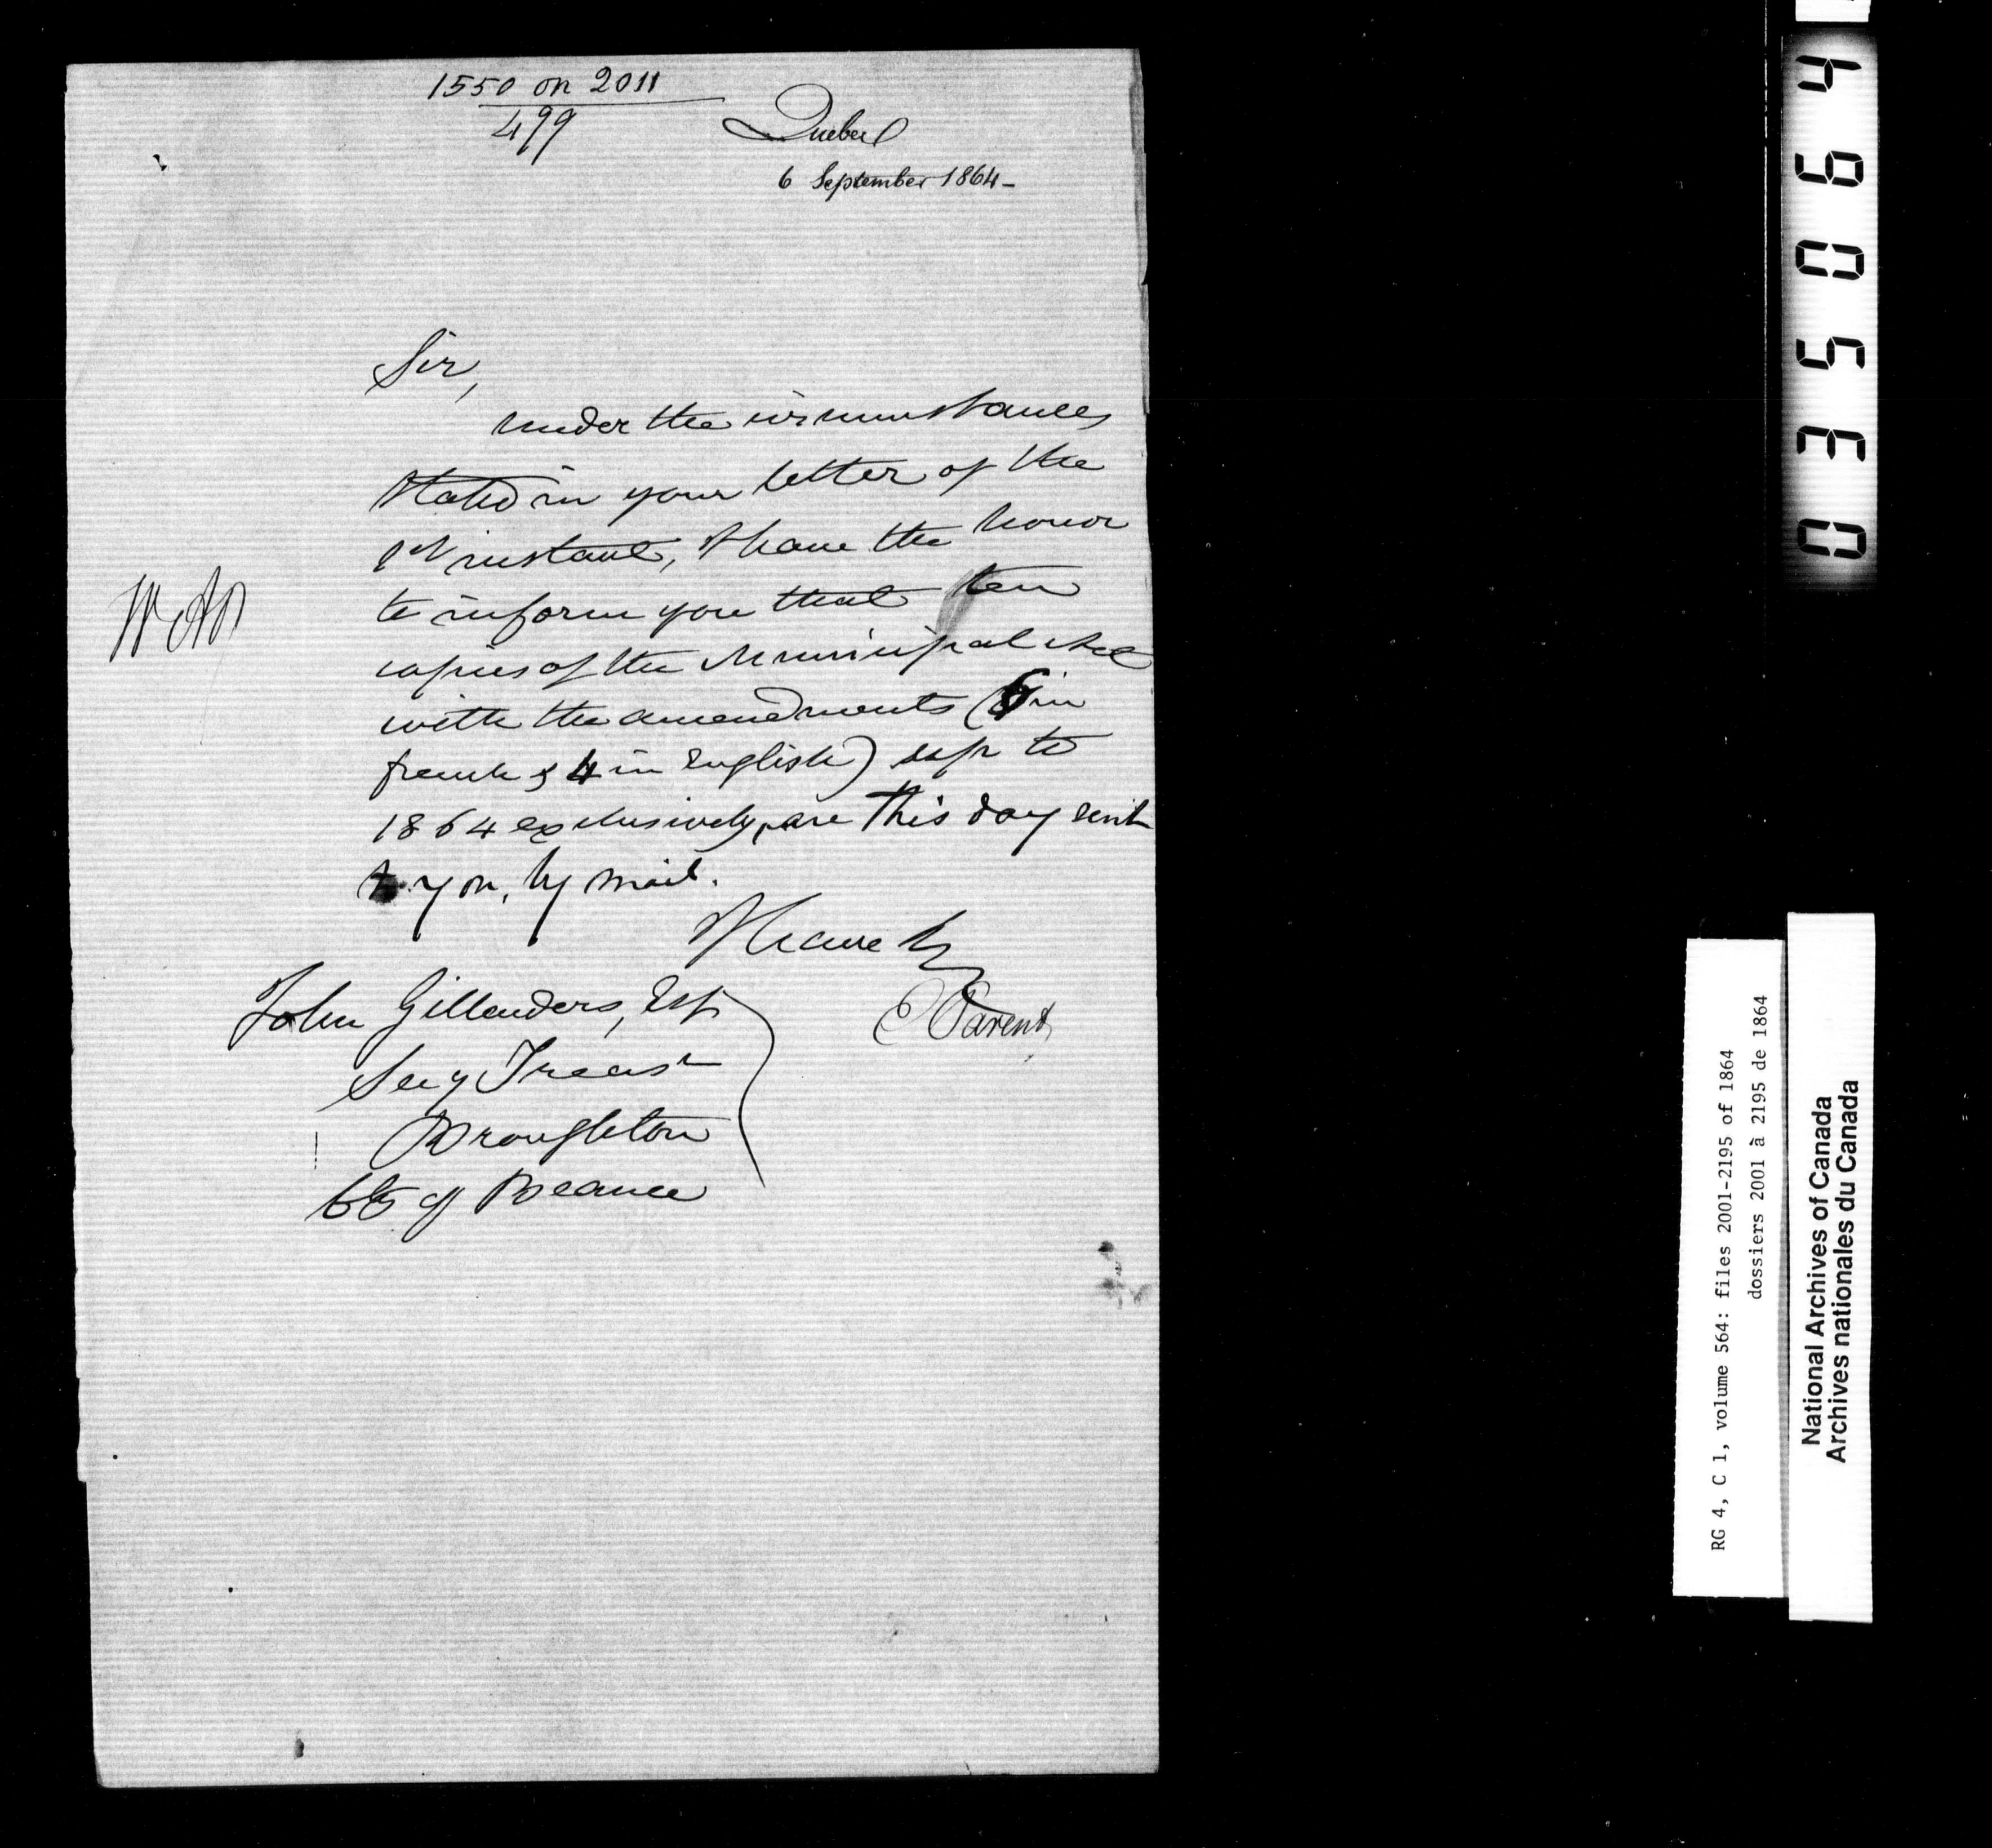 1550 on 2011
499
Quebec
6 September 1864-
Sir,
Under the circumstances
stated in your letter of the
1st instant, I have the honor
to inform you that ten
copies of the Municipal Act
with the amendments (6 in
french & 4 in English) up to
1864 exclusively, are this day sent
to you, by mail.
I have &c
E Parent
John Gillanders, Esq
Secy Treasr
Broughton
Co of Beauce
035064
RG 4, C 1, volume 564: files 2001-2195 of 1864
dossiers 2001 à 2195 de 1864
National Archives of Canada
Archives nationales du Canada